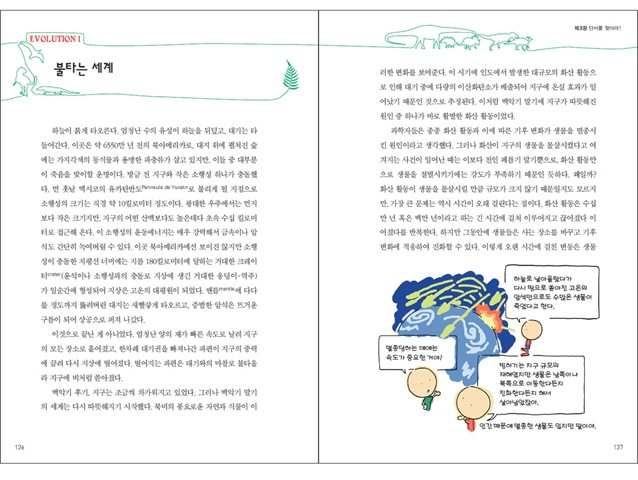 EVOLUTION I
불타는 세계
하늘이 붉게 타오른다. 엄청난 수의 유성이 하늘을 뒤덮고, 대기는 타
들어간다. 이곳은 약 6550만 년 전의 북아메리카로, 대지 위에 펼쳐진 숲
에는 가지각색의 동식물과 용맹한 파충류가 살고 있지만, 이들 중 대부분
이 죽음을 맞이할 운명이다. 방금 전 지구와 작은 소행성 하나가 충돌했
다. 먼 훗날 멕시코의 유카탄반도Peninsula de Yucatn로 불리게 될 지점으로
소행성의 크기는 직경 약 10킬로미터 정도이다. 광대한 우주에서는 먼지
보다 작은 크기지만, 지구의 어떤 산맥보다도 높은데다 초속 수십 킬로미
터로 접근해 온다. 이 소행성의 운동에너지는 매우 강력해서 금속이나 암
석도 간단히 녹여버릴 수 있다. 이곳 북아메리카에선 보이진 않지만 소행
성이 충돌한 지평선 너머에는 지름 180킬로미터에 달하는 거대한 크레이
터crater(운석이나 소행성과의 충돌로 지상에 생긴 거대한 웅덩이-역주)
가 일순간에 형성되어 지상은 고온의 대평원이 되었다. 맨틀mantle에 다다
를 정도까지 뚫려버린 대지는 새빨갛게 타오르고, 증발한 암석은 뜨거운
구름이 되어 상공으로 퍼져 나갔다.
이것으로 끝난 게 아니었다. 엄청난 양의 재가 빠른 속도로 날려 지구
의 모든 장소로 흩어졌고, 한차례 대기권을 빠져나간 파편이 지구의 중력
에 끌려 다시 지상에 떨어졌다. 떨어지는 파편은 대기와의 마찰로 불타올
라 지구에 비처럼 쏟아졌다.
백악기 후기, 지구는 조금씩 차가워지고 있었다. 그러나 백악기 말기
의 세계는 다시 따뜻해지기 시작했다. 북미의 풍요로운 자연과 식물이 이
126
제3장 단서를 찾아라!
러한 변화를 보여준다. 이 시기에 인도에서 발생한 대규모의 화산 활동으
로 인해 대기 중에 다량의 이산화탄소가 배출되어 지구에 온실 효과가 일
어났기 때문인 것으로 추정된다. 이처럼 백악기 말기에 지구가 따뜻해진
원인 중 하나가 바로 활발한 화산 활동이었다.
과학자들은 종종 화산 활동과 이에 따른 기후 변화가 생물을 멸종시
킨 원인이라고 생각했다. 그러나 화산이 지구의 생물을 몰살시켰다고 여
겨지는 사건이 일어난 때는 이보다 전인 페름기 말기뿐으로, 화산 활동만
으로 생물을 전멸시키기에는 강도가 부족하기 때문인 듯하다. 왜일까?
화산 활동이 생물을 몰살시킬 만큼 규모가 크지 않기 때문일지도 모르지
만, 가장 큰 문제는 역시 시간이 오래 걸린다는 점이다. 화산 활동은 수십
만 년 혹은 백만 년이라고 하는 긴 시간에 걸쳐 이루어지고 끊어졌다 이
어졌다를 반복한다. 하지만 그동안에 생물들은 사는 장소를 바꾸고 기후
변화에 적응하여 진화할 수 있다. 이렇게 오랜 시간에 걸친 변동은 생물
하늘로 날아올랐다가
다시 땅으로 쏟아진 고온의
암석만으로도 수많은 생물이
죽었다고 한다.
멸종당하는 데에는
속도가 중요한 거야!
빙하기는 지구 규모의
재해였지만 생물은 남쪽이나
북쪽으로 이동한다든지
진화한다든지 해서
살아남았잖아.
인간 때문에 멸종한 생물도 있지만 말이야.
127